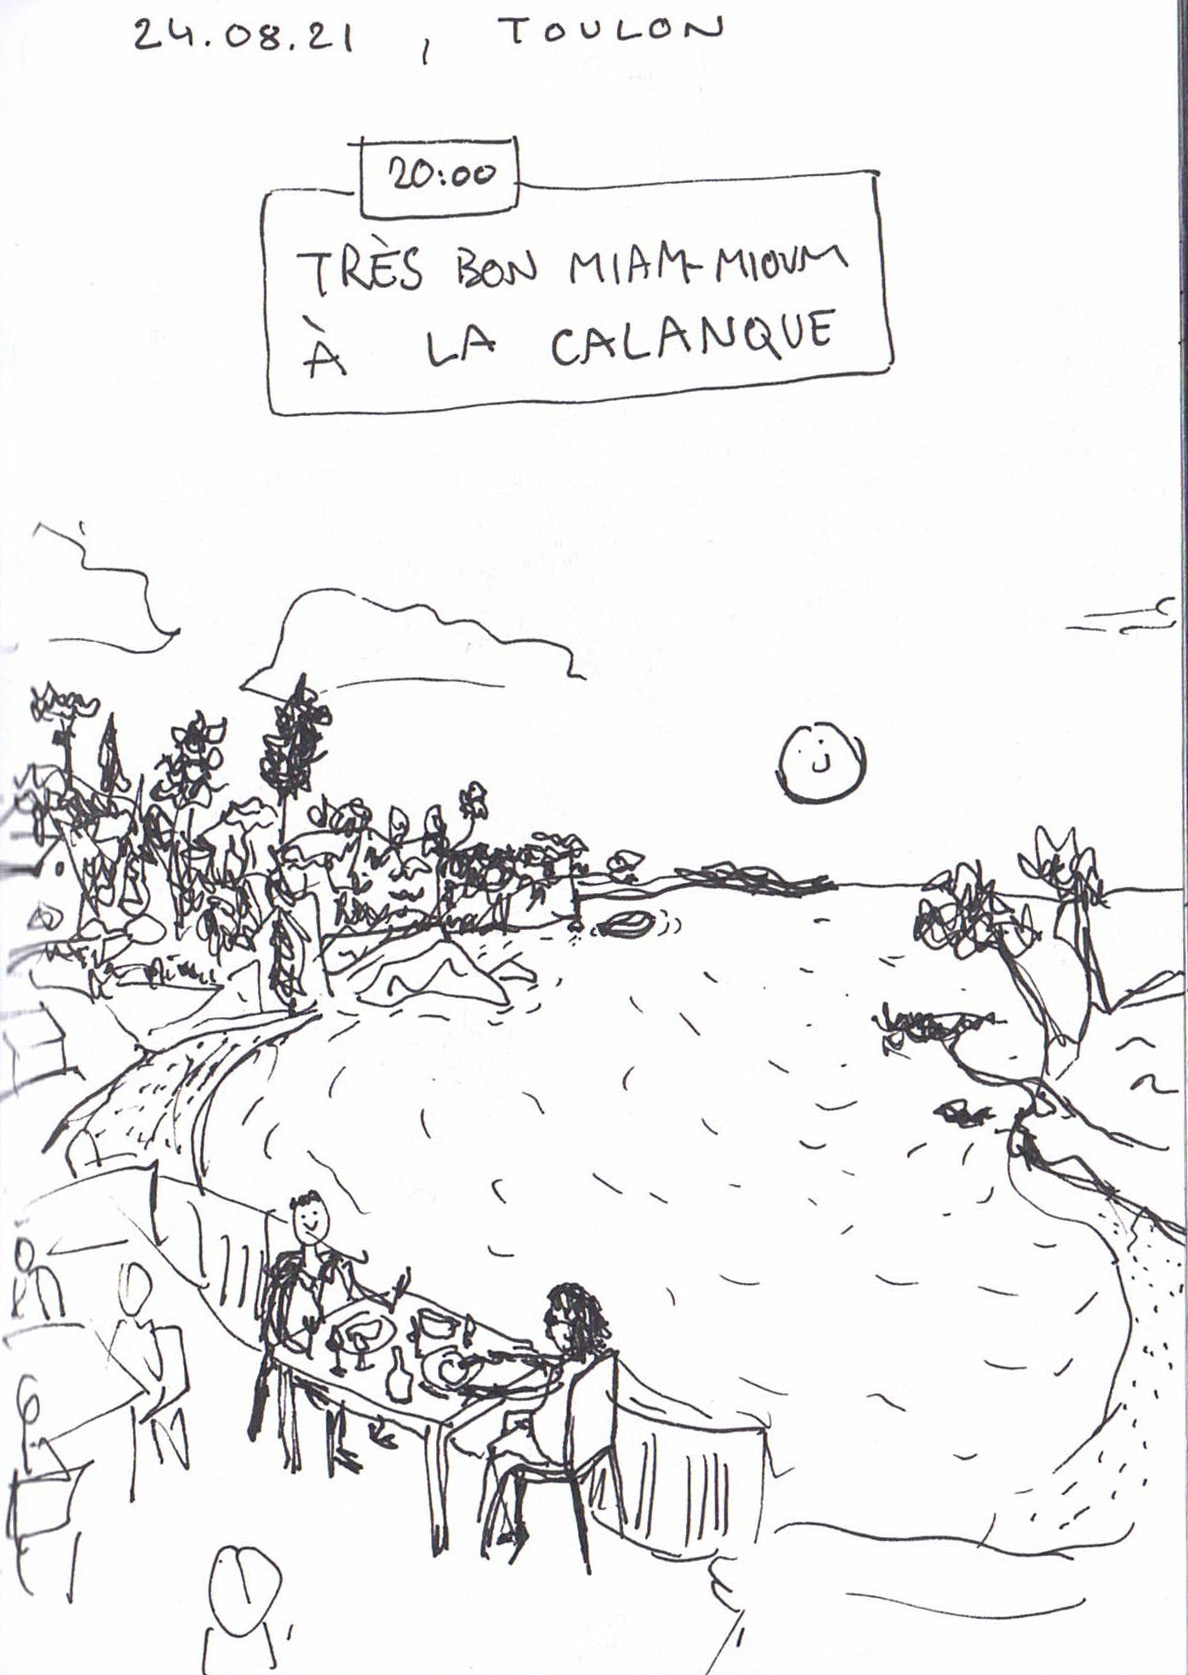 24.08.21 , TOULON
20:00
TRÈS BON MIAM-MIOUM
À LA CALANQUE